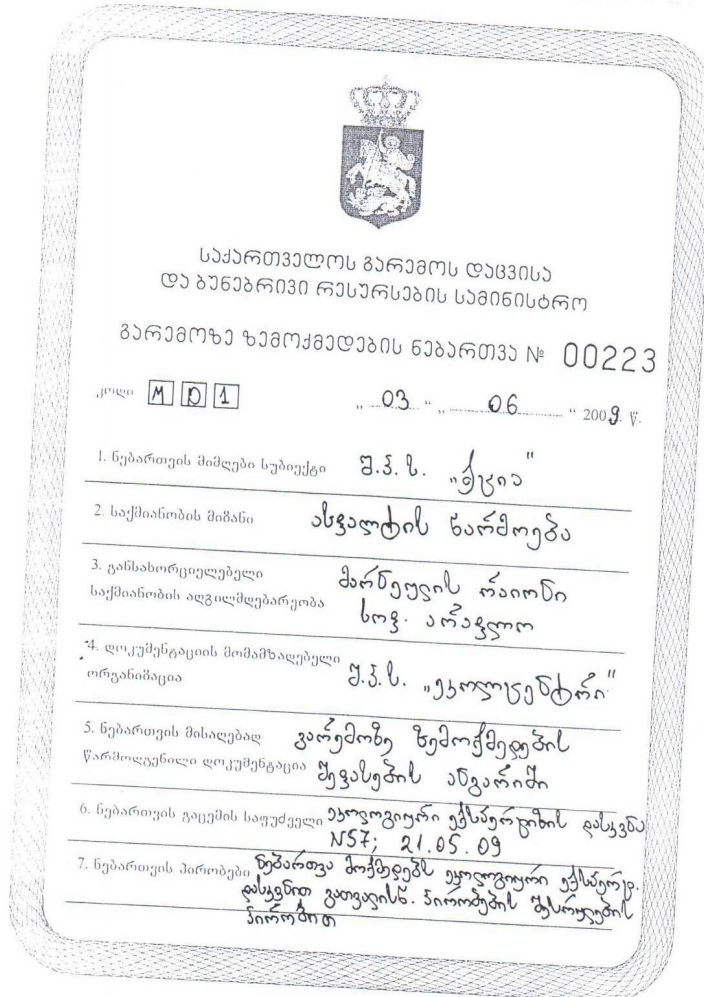 საქართველოს გარემოს დაცვისა
და ბუნებრივი რესურსების სამინისტრო
გარემოზე ზემოქმედების ნებართვა № 00223
კოდი M D 1 „ 03 “ „ 06 “ 2009 წ.
1. ნებართვის მიმღები სუბიექტი შ.პ.ს. „ქცია"
2. საქმიანობის მიზანი ასფალტის წარმოება
3. განსახორციელებელი მარნეულის რაიონი
საქმიანობის ადგილმდებარეობა სოფ. არაფლო
4. დოკუმენტაციის მომამზადებელი
ორგანიზაცია შ.პ.ს. „ეკოლცენტრი"
5. ნებართვის მისაღებად გარემოზე ზემოქმედების
წარმოდგენილი დოკუმენტაცია შეფასების ანგარიში
6. ნებართვის გაცემის საფუძველი ეკოლოგიური ექსპერტიზის დასკვნა
N57; 21.05.09
7. ნებართვის პირობები ნებართვა მოქმედებს ეკოლოგიური ექსპერტ.
დასკვნით გათვალისწ. პირობების შესრულების
პირობით